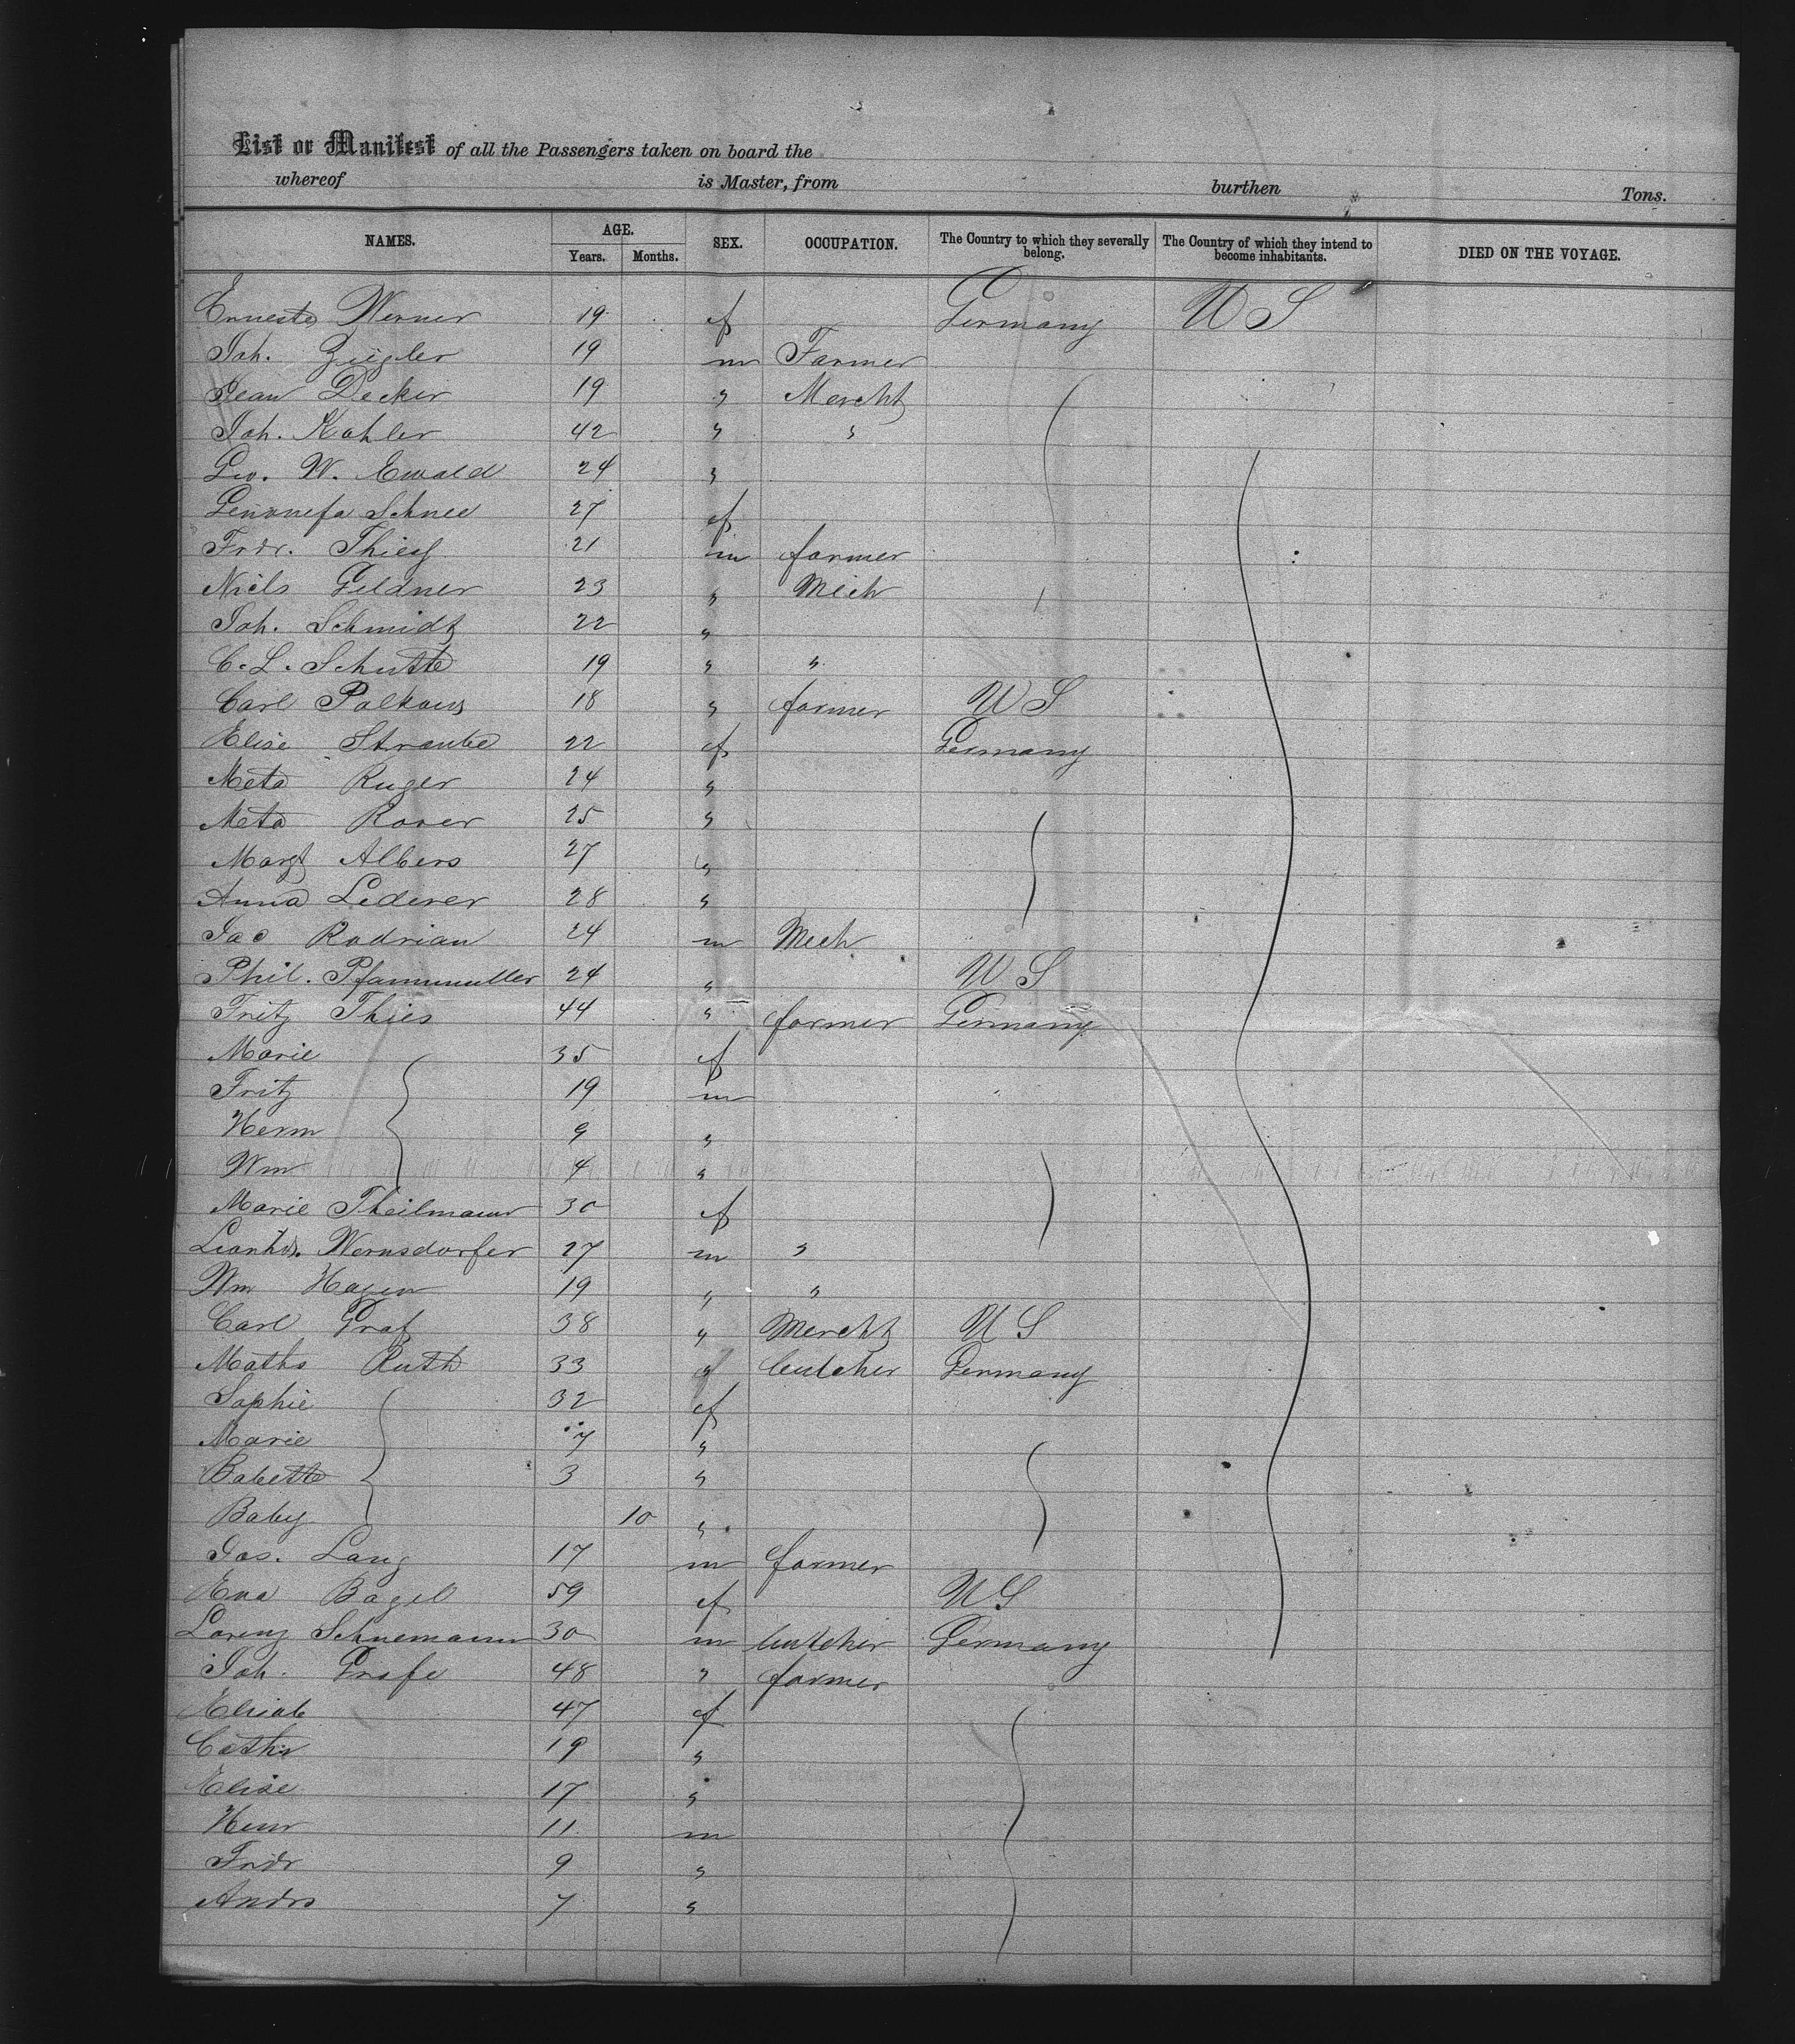 List or Manifest of all the Passengers taken on board the
whereof is Master, from burthen Tons.
NAMES. AGE. Years. Months. SEX. OCCUPATION. The Country to which they severally belong. The Country of which they intend to become inhabitants. DIED ON THE VOYAGE.
Ernesto Werner 19 f Germany U S
Joh. Zugler 19 m Farmer
Jean Decker 19 " Mercht
Joh. Kohler 42 " "
Geo. W. Ewald 24 "
Genovefa Schnee 27 f
Frdr. Thies 21 m farmer
Niels Geldner 23 " Mech
Joh. Schmidt 22 "
C. L. Schutte 19 " "
Carl 18 " farmer U S
Elise Straube 22 f Germany
Meta Ruger 24 "
Meta Rover 25 "
Margt Albers 27 "
Anna Lederer 28 "
Jac Rodrian 24 m Mech
Phil. Pfannmuller 24 " U S
Fritz Thies 44 " farmer Germany
Marie 35 f
Fritz 19 m
Herm 9 "
Wm 4 "
Marie Theilmann 30 f
Wernsdorfer 27 m "
Wm Hagen 19 " "
Carl Graf 38 " Mercht U S
Maths Ruth 33 butcher Germany
Sophie 32 f
Marie 7 "
Babette 3 "
Baby 10 "
Jos. Lang 17 m farmer
Eva Bagel 59 f U S
Lorenz Schnemann 30 m butcher Germany
Joh. Grafe 48 " farmer
Elisab 47 f
Cathr 19 "
Elise 17 "
Henr 11 m
Fridr 9 "
Andrs 7 "